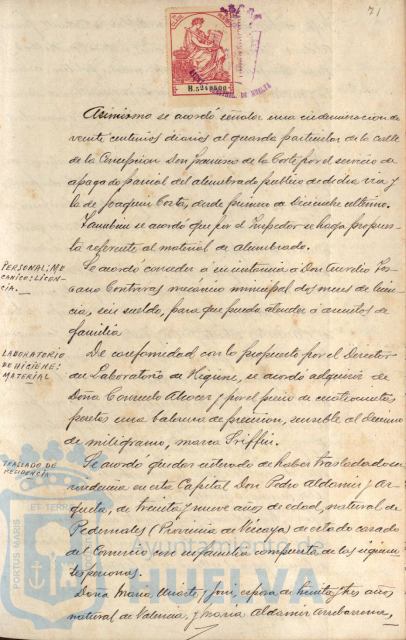 71
B.5248500
Asimismo se acordó señalar una indemnización de
veinte centimos diarios al guarda particular de la calle
de la Concepcion Don Francisco de la Corte por el servicio de
apagado parcial del alumbrado publico de dicha via y
la de Joaquin Costa, desde primero de Diciembre ultimo.
Tambien se acordó que por el Inspector se haga propues
ta referente al material de alumbrado.
PERSONAL: ME
CANICO: LICEN-
CIA.
Se acordó conceder á su instancia a Don Aurelio
Contreras mecanico municipal dos meses de licen
cia, sin sueldo, para que pueda atender a asuntos de
familia
LABORATORIO
DE HIGIENE:
MATERIAL
De conformidad con lo propuesto por el Director
del Laboratorio de Higiene, se acordó adquirir de
Doña Consuelo y por el precio de
pesetas una balanza de precision, sensible al decimo
de miligramo, marca
TRASLADO DE
RESIDENCIA
Se acordó quedar enterado de haber trasladado su
residencia en esta Capital Don Pedro Aldamiz y
de treinta y nueve años de edad, natural de
Pedernales (Provincia de Vizcaya) de estado casado
del Comercio con su familia compuesta de las siguien
tes personas.
Doña Maria esposa de treinta y tres años
natural de Valencia, y Maria Aldamiz
ET TERRÆ
PORTUS MARIS
Ayuntamiento de
HUELVA